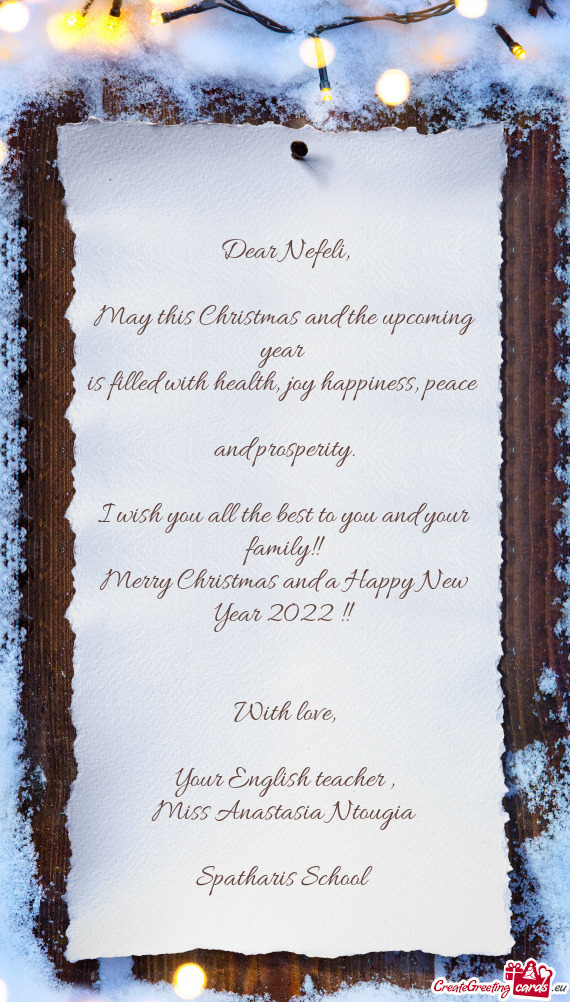 Dear Nefeli,
May this Christmas and the upcoming
year
is filled with health, joy happiness, peace
and prosperity.
I wish you all the best to you and your
family!!
Merry Christmas and a Happy New
Year 2022 !!
With love,
Your English teacher ,
Miss Anastasia Ntougia
Spatharis School
CreateGreetingcards.eu